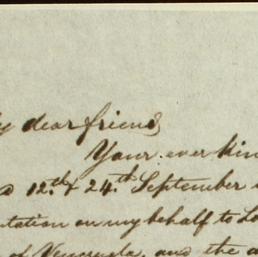 y dear friend,
Your ever kin
12.th & 24.th September
tation on my behalf to Lo
of Venezuela, and the a